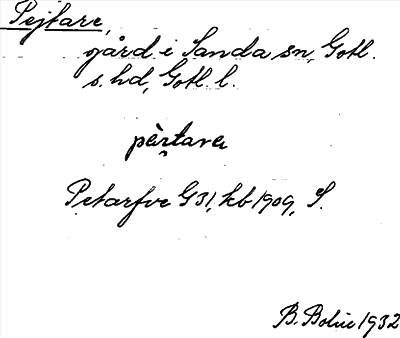 Pejtare,
gård i Sanda sn, Gotl.
s. hd, Gotl. l.
pèṛtara
Petarfve G 31, kb 1909, S.
B. Bolin 1932